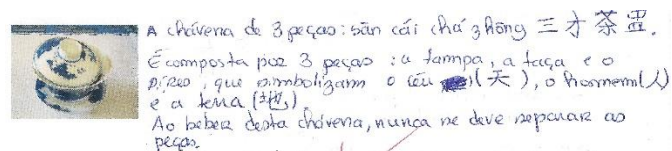 A chávena de 3 peças: sān cái chá zhōng 三才茶盅.
É composta por 3 peças: a tampa, a taça e o
pires, que simbolizam o céu (天), o homem (人)
e a terra (地)
Ao beber desta chávena, nunca se deve separar as
peças.